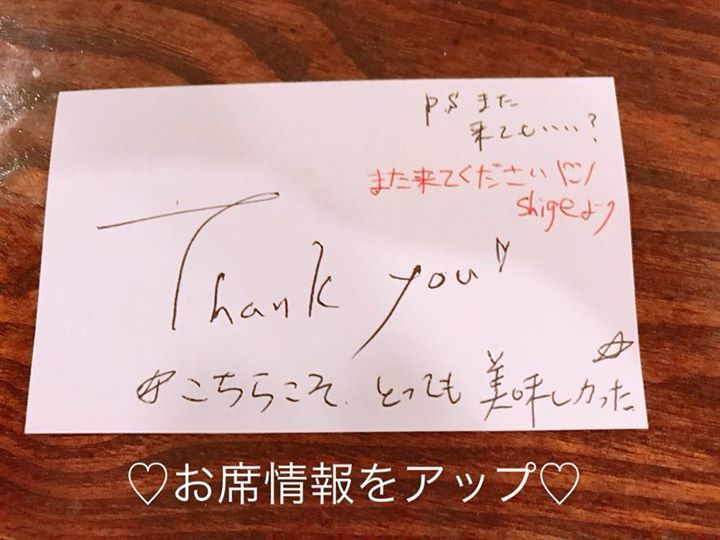 PS また
来てもいい?
また来てください
shigeより
Thank you
☆こちらこそ、とっても美味しかった☆
♡お席情報をアップ♡